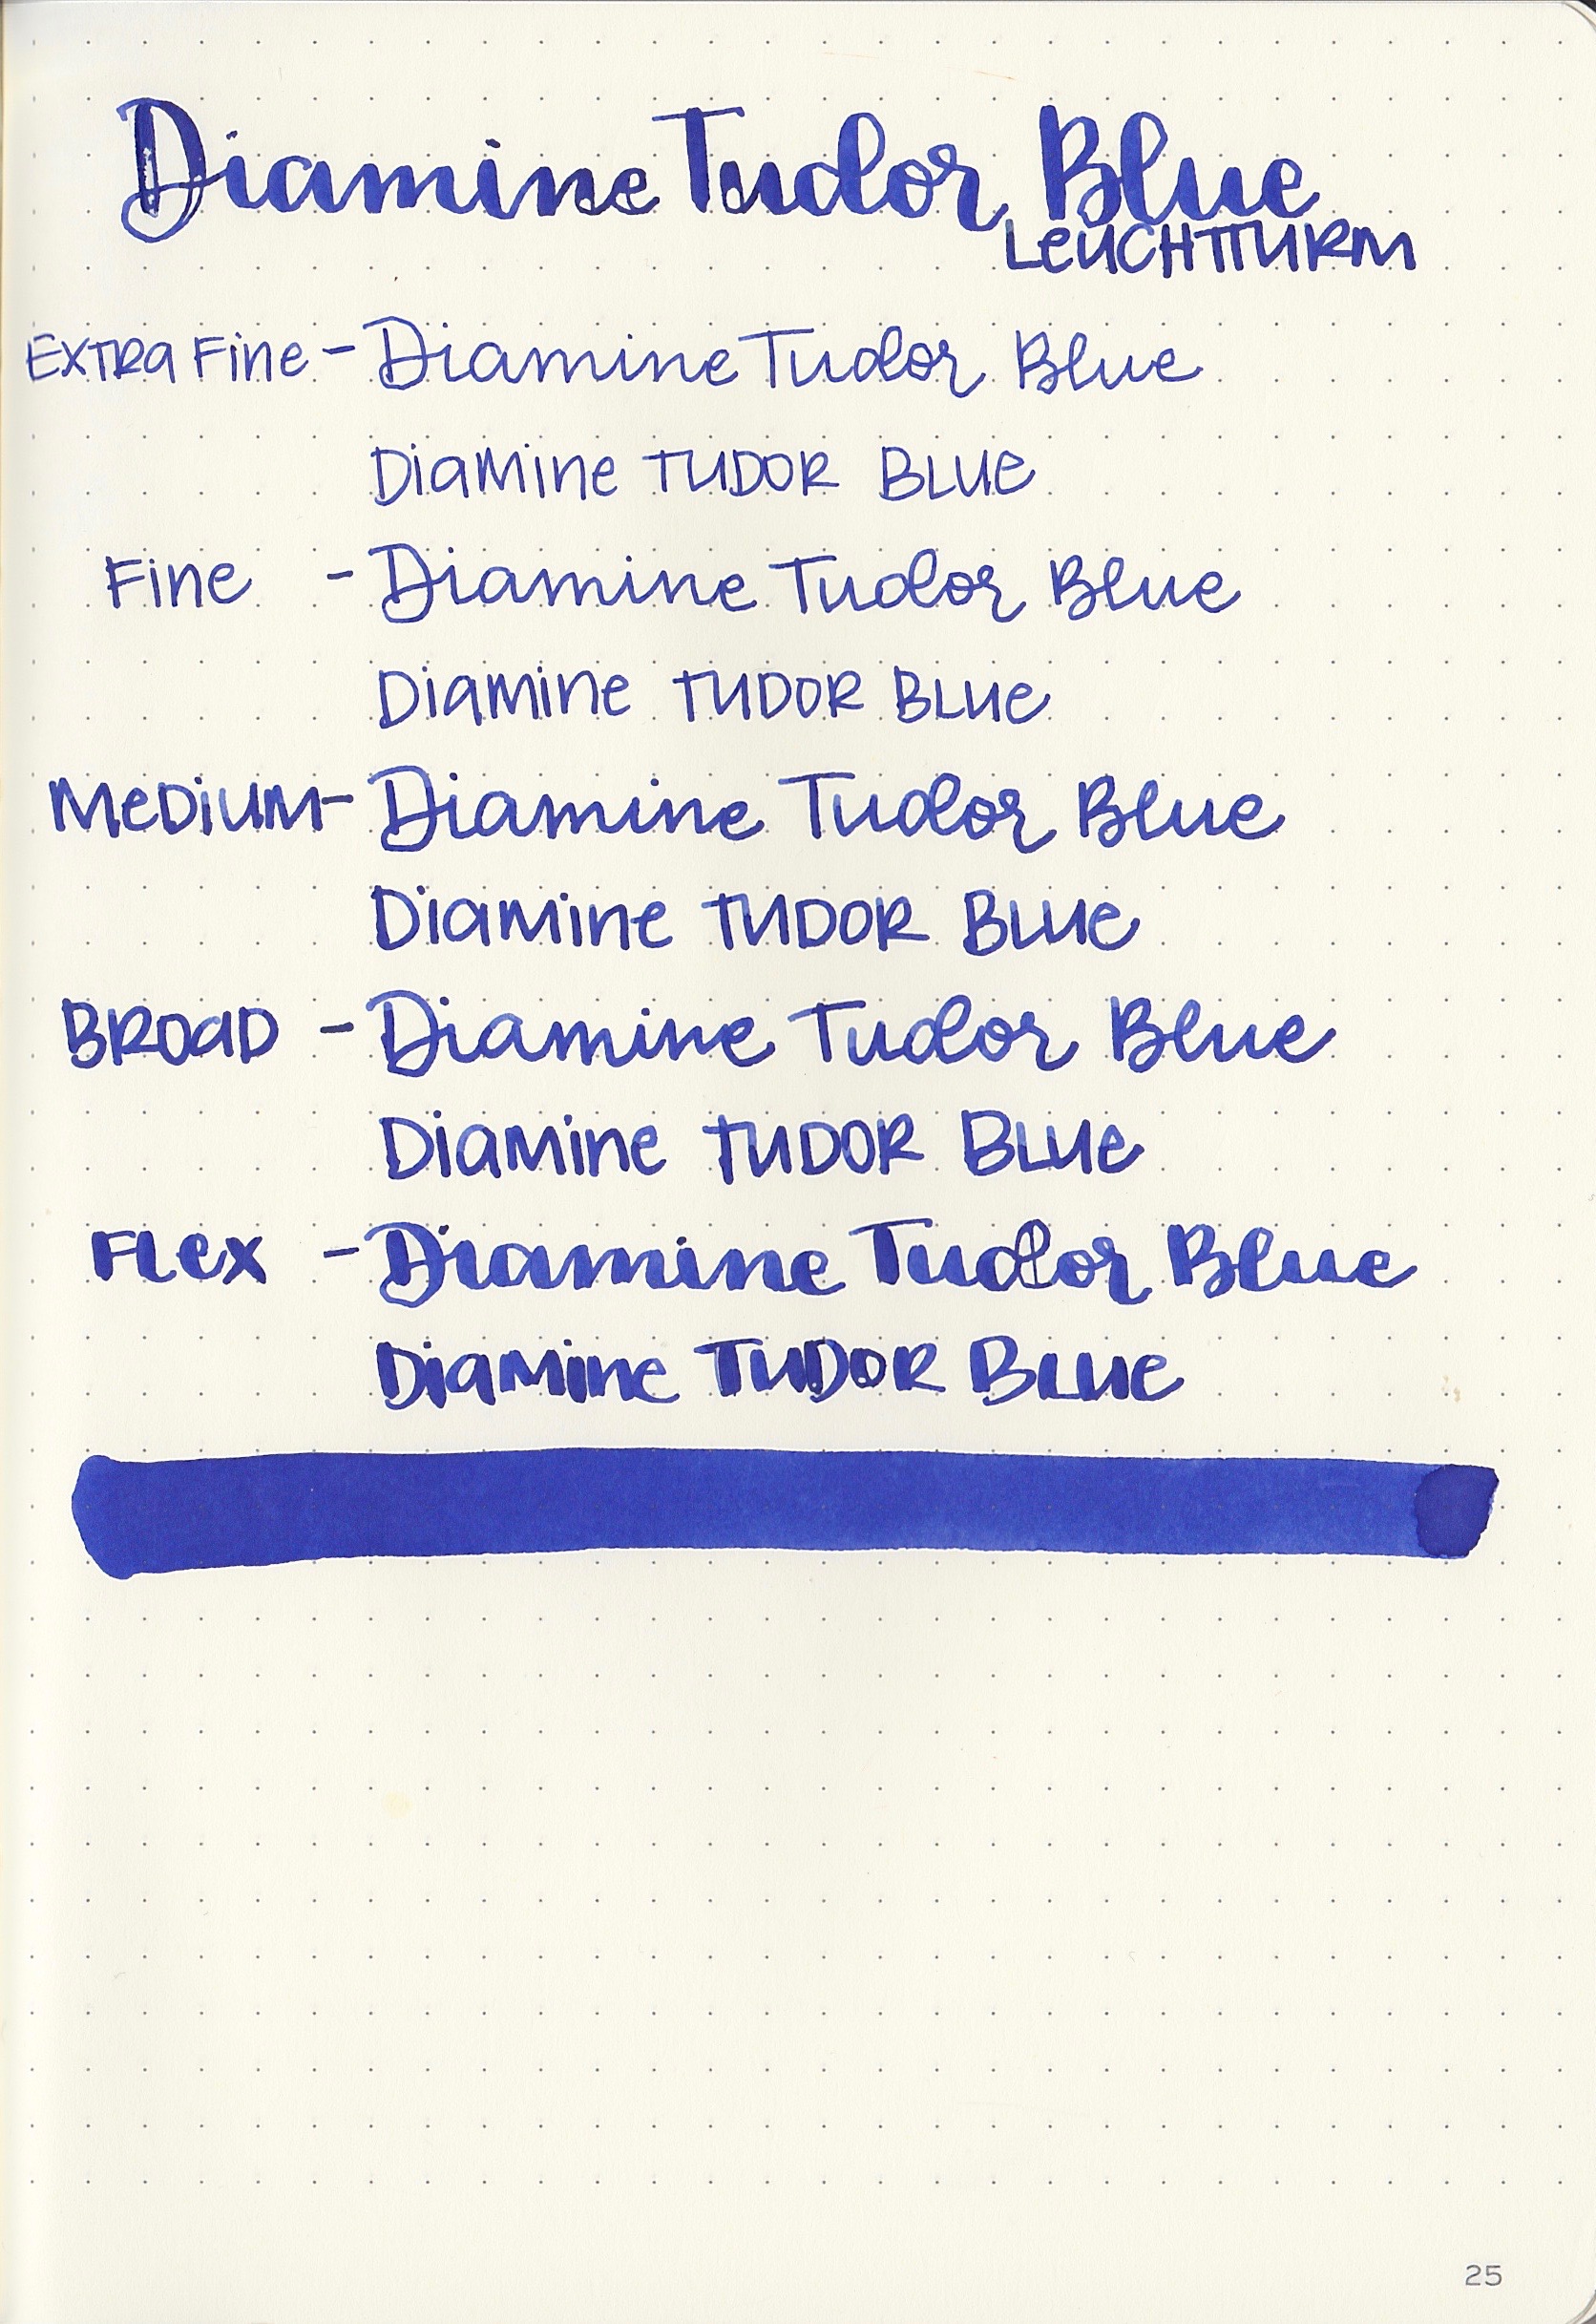 Diamine Tudor Blue
LeUCHTTURM
EXTRa Fine - Diamine Tudor Blue
Diamine TUDOR BLUe
Fine - Diamine Tudor Blue
Diamine TUDOR BLUe
MeDiUM - Diamine Tudor Blue
Diamine TUDOR BLUe
BROaD - Diamine Tudor Blue
Diamine TUDOR BLUe
FLex - Diamine Tudor Blue
Diamine TUDOR BLUe
25